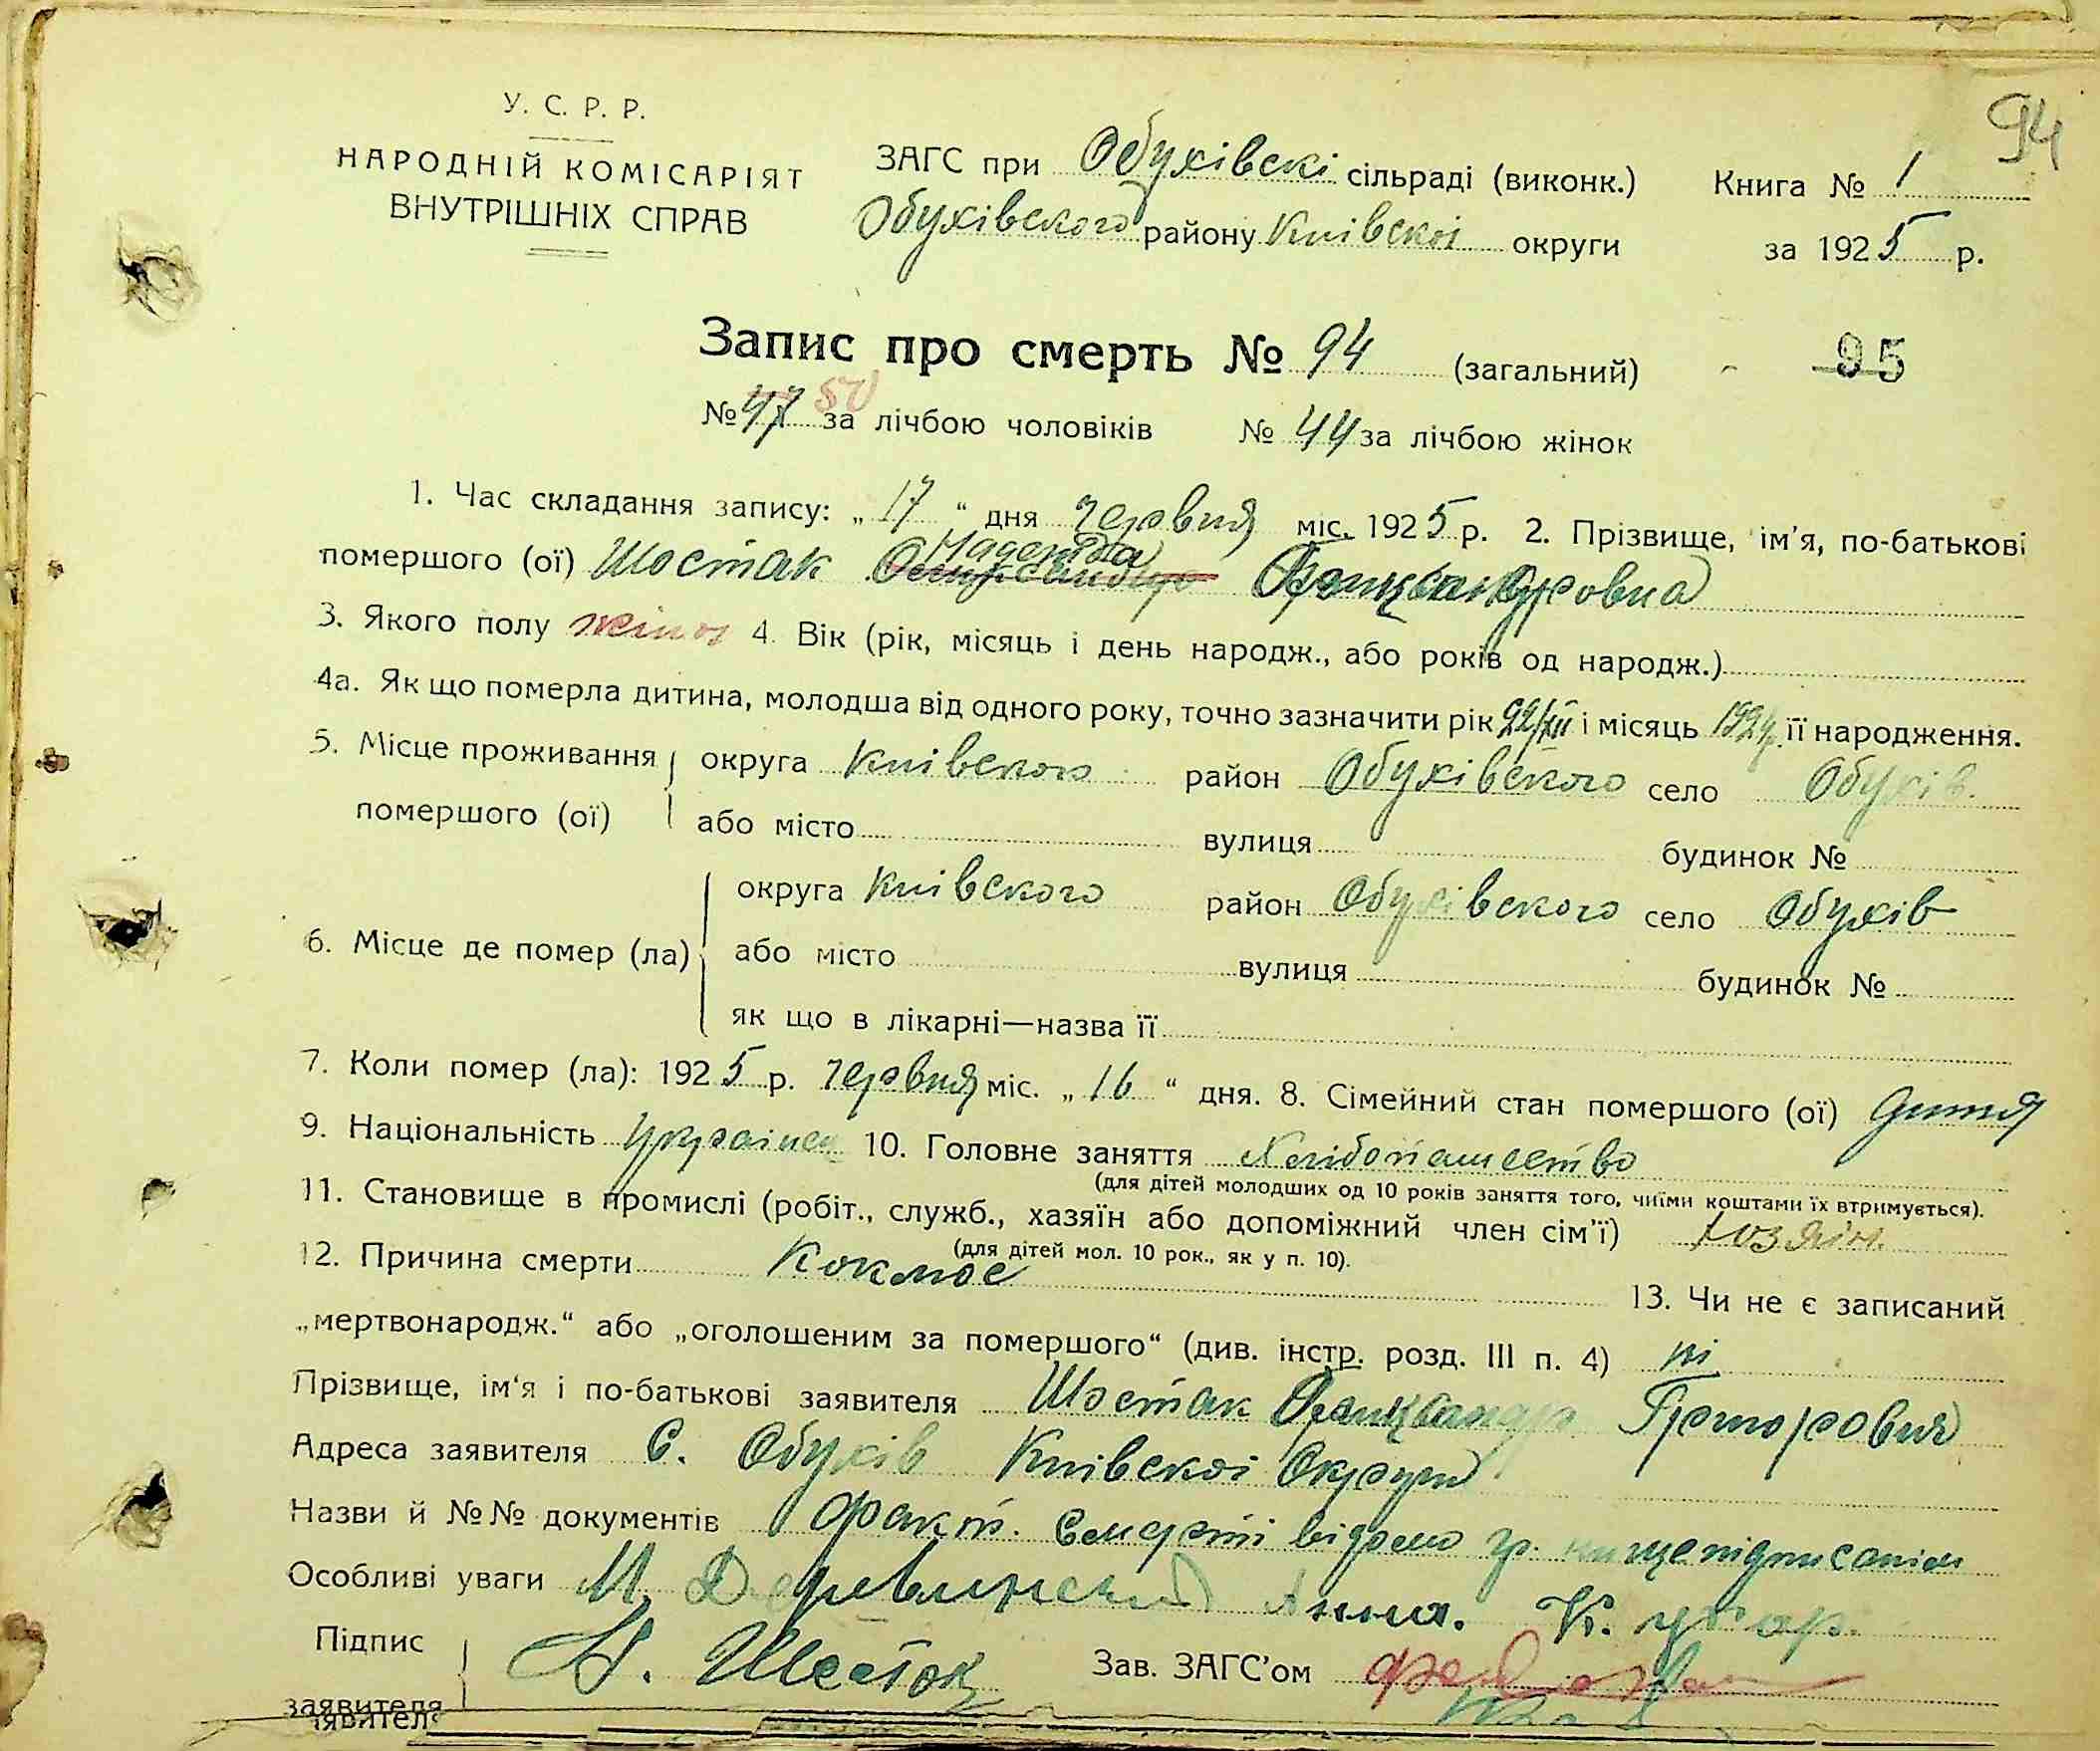 94
У. С. Р. Р.
НАРОДНІЙ КОМІСАРІЯТ
ВНУТРІШНІХ СПРАВ
ЗАГС при Обухівскі сільраді (виконк.) Книга № 1
Обухівского району Київскоі округи за 1925 р.
Запис про смерть № 94 (загальний) 95
№ 47 50 за лічбою чоловіків № 44 за лічбою жінок
1. Час складання запису: „17“ дня червня міс. 1925 р. 2. Прізвище, ім'я, по-батькові
Надежда
помершого (ої) Шостак
3. Якого полу жіноч 4. Вік (рік, місяць і день народж., або років од народж.)
4а. Як що померла дитина, молодша від одного року, точно зазначити рік 22/XII і місяць 1924р. її народження.
5. Місце проживання помершого (ої) округа Київского район Обухівского село Обухів.
або місто вулиця будинок №
6. Місце де помер (ла) округа Київского район Обухівского село Обухів
або місто вулиця будинок №
як що в лікарні—назва її
7. Коли помер (ла): 1925 р. червня міс. „16“ дня. 8. Сімейний стан помершого (ої) дитя
9. Національність Украінец 10. Головне заняття Хлібопашество
(для дітей молодших од 10 років заняття того, чиїми коштами їх втримується).
11. Становище в промислі (робіт., служб., хазяїн або допоміжний член сім'ї) хозяін.
(для дітей мол. 10 рок., як у п. 10).
12. Причина смерти Коклюс 13. Чи не є записаний
„мертвонародж.“ або „оголошеним за помершого“ (див. інстр. розд. III п. 4) ні
Прізвище, ім'я і по-батькові заявителя Шостак
Адреса заявителя С. Обухів Київскоі Округи
Назви й №№ документів Факт. Смерті відомо гр. нищепідписанім
Особливі уваги М. Анна. К.
Підпис заявителя Шосток Зав. ЗАГС'ом
заявителя